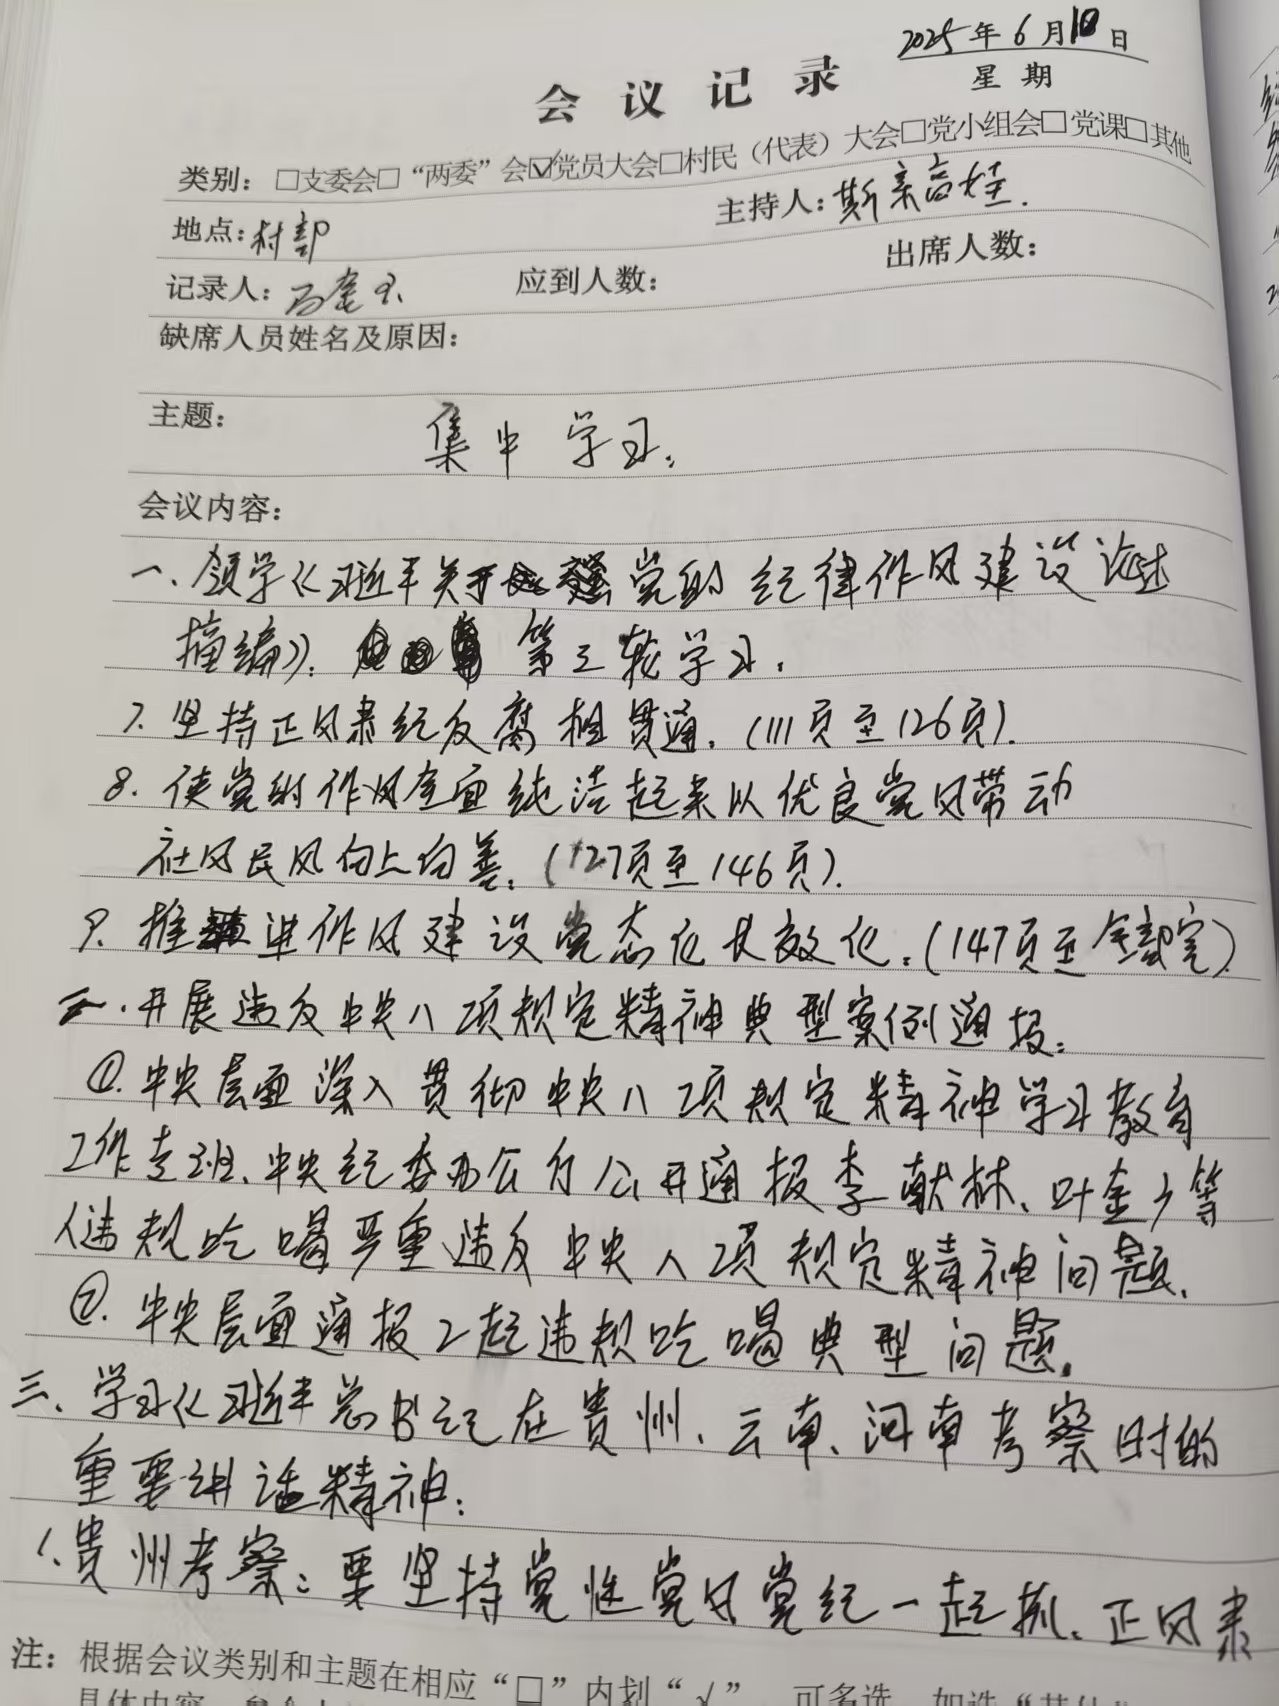 2025年6月10日
星期
会议记录
类别：□支委会□“两委”会☑党员大会□村民（代表）大会□党小组会□党课□其他
地点：村部
主持人：斯亲高娃.
记录人：
应到人数：
出席人数：
缺席人员姓名及原因：
主题：
集中学习.
会议内容：
一、领学《习近平关于 党的纪律作风建设论述
摘编》： 第三轮学习.
7. 坚持正风肃纪反腐相贯通.（111页至126页）.
8. 使党的作风全面纯洁起来以优良党风带动
社风民风向上向善.（127页至146页）.
9. 推进作风建设常态化长效化.（147页至全部完）
二.开展违反中央八项规定精神典型案例通报：
①.中央层面深入贯彻中央八项规定精神学习教育
工作专班、中央纪委办公厅公开通报李献林、叶金广等
人违规吃喝严重违反中央八项规定精神问题.
②.中央层面通报2起违规吃喝典型问题.
三、学习《习近平总书记在贵州、云南、河南考察时的
重要讲话精神：
1、贵州考察：要坚持党性党风党纪一起抓、正风肃
注：根据会议类别和主题在相应“□”内划“√”，可多选，如选“其他”